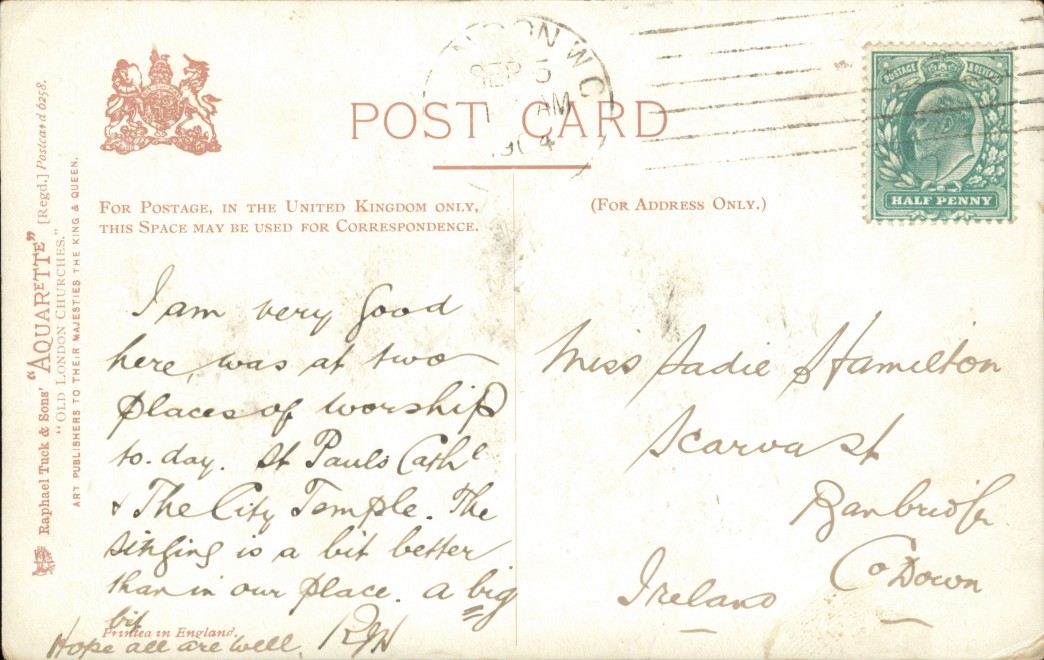 Raphael Tuck & Sons' "AQUARETTE" [Regd.] Postcard 6258.
"OLD LONDON CHURCHES."
ART PUBLISHERS TO THEIR MAJESTIES THE KING & QUEEN.
POST CARD
LONDON W C
SEP 5
AM
POSTAGE & REVENUE
HALF PENNY
FOR POSTAGE, IN THE UNITED KINGDOM ONLY,
THIS SPACE MAY BE USED FOR CORRESPONDENCE.
(FOR ADDRESS ONLY.)
I am very good
here, was at two
places of worship
to-day. St Pauls Cathl
& The City Temple. The
singing is a bit better
than in our place. a big
bit
Hope all are well. RJH
Printed in England.
Miss Sadie S Hamilton
Scarva St
Banbridge
Co Down
Ireland